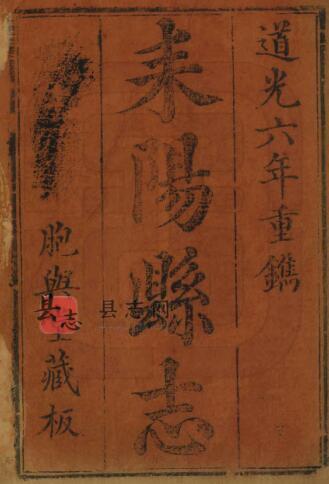 道光六年重鐫
耒陽縣志
胞與
藏板
县志
县志网